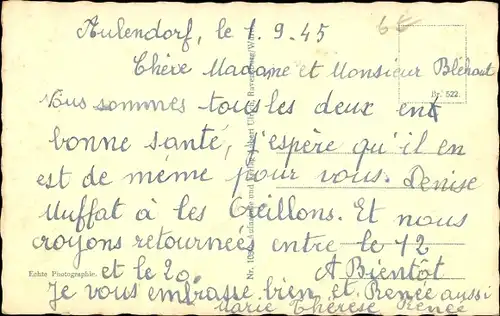 Aulendorf, le 1.9.45
6€
Chère Madame et Monsieur Bléhaut
Br. 522.
Nous sommes tous les deux ent
bonne santé, j'espère qu'il en
est de même pour vous. Denise
Muffat à les Oreillons. Et nous
croyons retournées entre le 12
et le 20. A Bientôt
Echte Photographie.
Je vous embrasse bien et Renée aussi
Marie Thérèse Renée